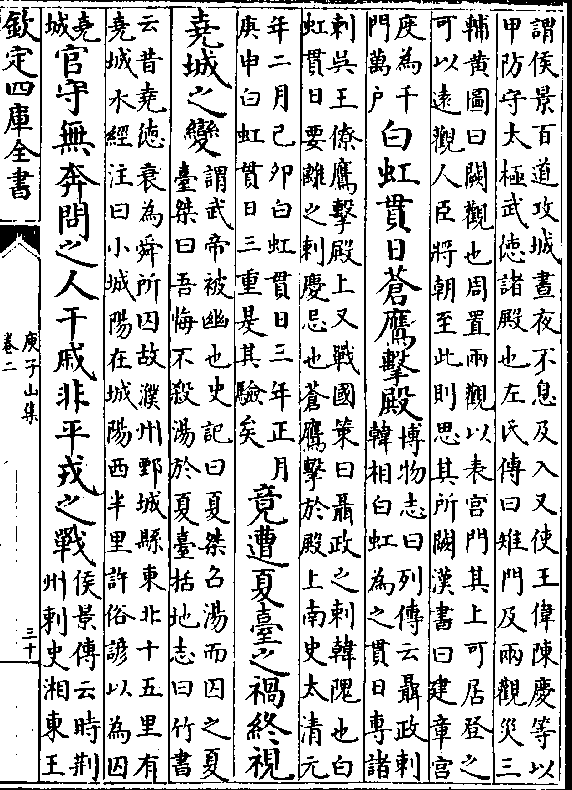 謂侯景百道攻城晝夜不息及入又使王偉陳慶等以
甲防守太極武徳諸殿也左氏傳曰雉門及兩觀災三
輔黄圖曰闕觀也周置兩觀以表宫門其上可居登之
可以逺觀人臣將朝至此則思其所闕漢書曰建章宫
度為千
門萬户
白虹貫日蒼鷹擊殿
博物志曰列傳云聶政刺
韓相白虹為之貫日専諸
刺吳王僚鷹擊殿上又戰國策曰聶政之刺韓隗也白
虹貫日要離之刺慶忌也蒼鷹擊於殿上南史太清元
年二月己卯白虹貫日三年正月
庚申白虹貫日三重是其驗矣
竟遭夏臺之禍終視
堯城之變
謂武帝被幽也史記曰夏桀召湯而囚之夏
臺桀曰吾悔不殺湯於夏臺括地志曰竹書
云昔堯徳衰為舜所囚故濮州鄄城縣東北十五里有
堯城水經注曰小城陽在城陽西半里許俗諺以為囚
堯
城
官守無奔問之人干戚非平戎之戰
侯景傳云時荆
州刺史湘東王
欽定四庫全書
庾子山集
卷二
三十